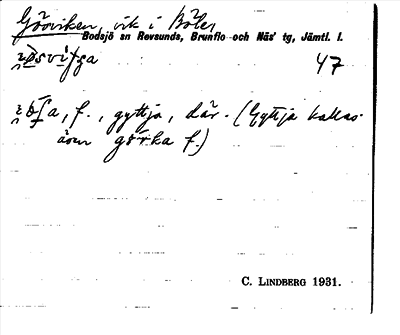 Gövviken, vik i Bölen
Bodsjö sn Revsunds, Brunflo och Näs' tg, Jämtl. l.
47
f., gyttja, där. (Gyttja kallas
även görka f.)
C. LINDBERG 1931.